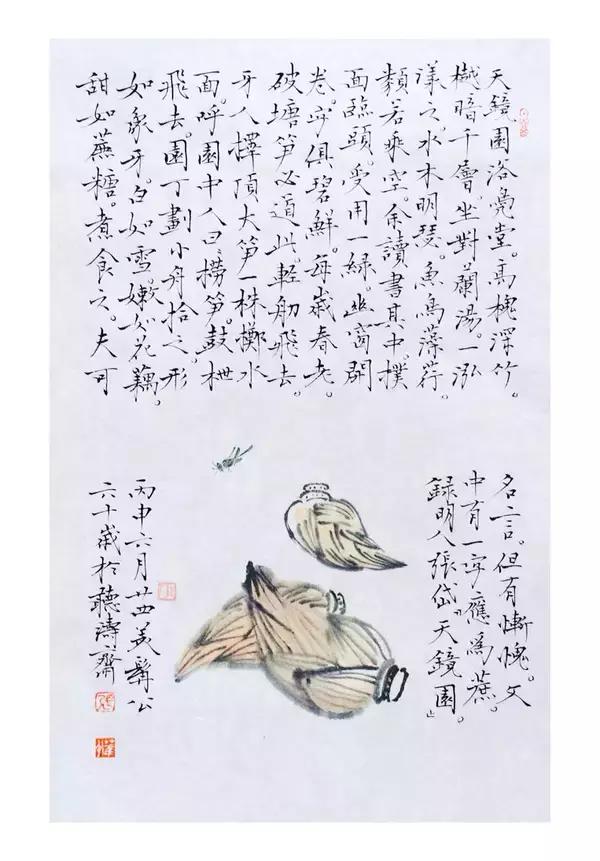 天鏡園洛鳧堂。高槐深竹。
樾暗千層。坐對蘭湯。一泓
漾之。水木明瑟。魚鳥藻荇。
類若乘空。余讀書其中。撲
面臨頭。受用一綠。幽窗開
卷。字俱碧鮮。每歲春老。
破塘笋必道此。輕舠飛去。
牙人擇頂大笋一株擲水
面。呼園中人曰撈笋。鼓枻
飛去。園丁劃小舟拾之。形
如象牙。白如雪。嫩如花藕。
甜如蕪糖。煮食之。夫可
名言。但有慚愧。文
中有一字應為蔗。
録明人張岱『天鏡園』。
丙申六月廿四美髯公
六十歲於聽濤齋